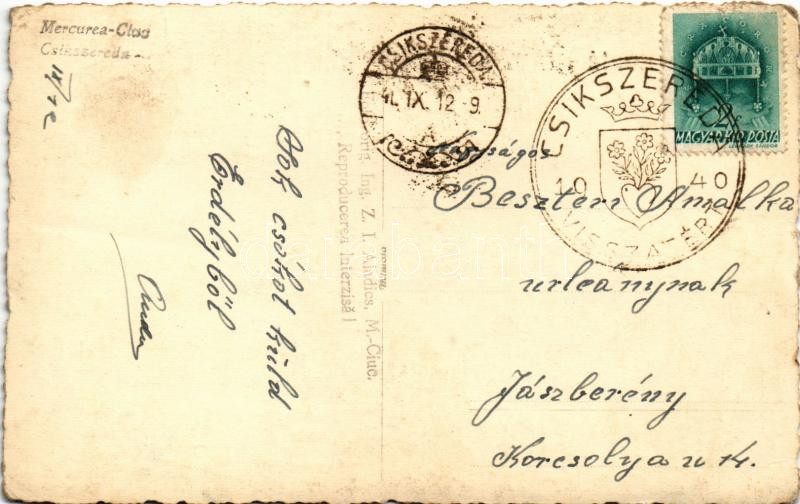 Mercurea-Ciuc
Csikszereda
IX/12
Sok csókot küld
Erdélyből
Ing. Z. I. Aladics, M.-Ciuc.
Reproducerea interzisă!
CSIKSZEREDA
41. IX. 12-9.
CSIKSZEREDA
1940
VISSZATÉRT
MAGYAR KIR. POSTA
Nagyságos
Beszteri Amálka
urleanynak
Jászberény
Korcsolya u 14.